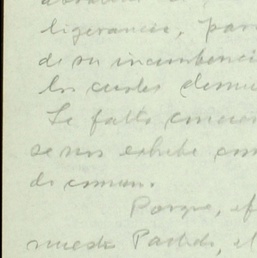 ligerancia, par
de su incumbenci
los cuales demu
Le falta concien
se nos exhibe com
de comun.
Porque, ef
nuestro Partido, el